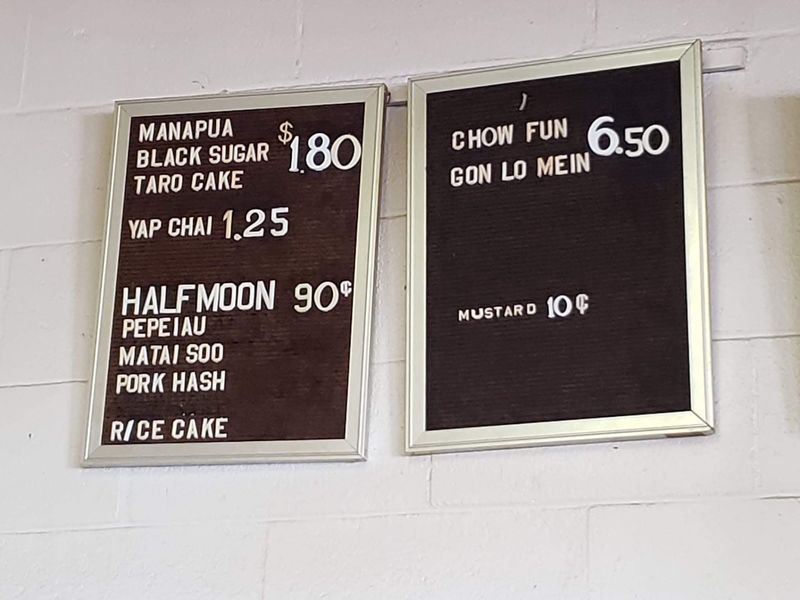 MANAPUA
BLACK SUGAR $1.80
TARO CAKE
YAP CHAI 1.25
HALFMOON 90¢
PEPEIAU
MATAI SOO
PORK HASH
RICE CAKE
CHOW FUN 6.50
GON LO MEIN
MUSTARD 10¢